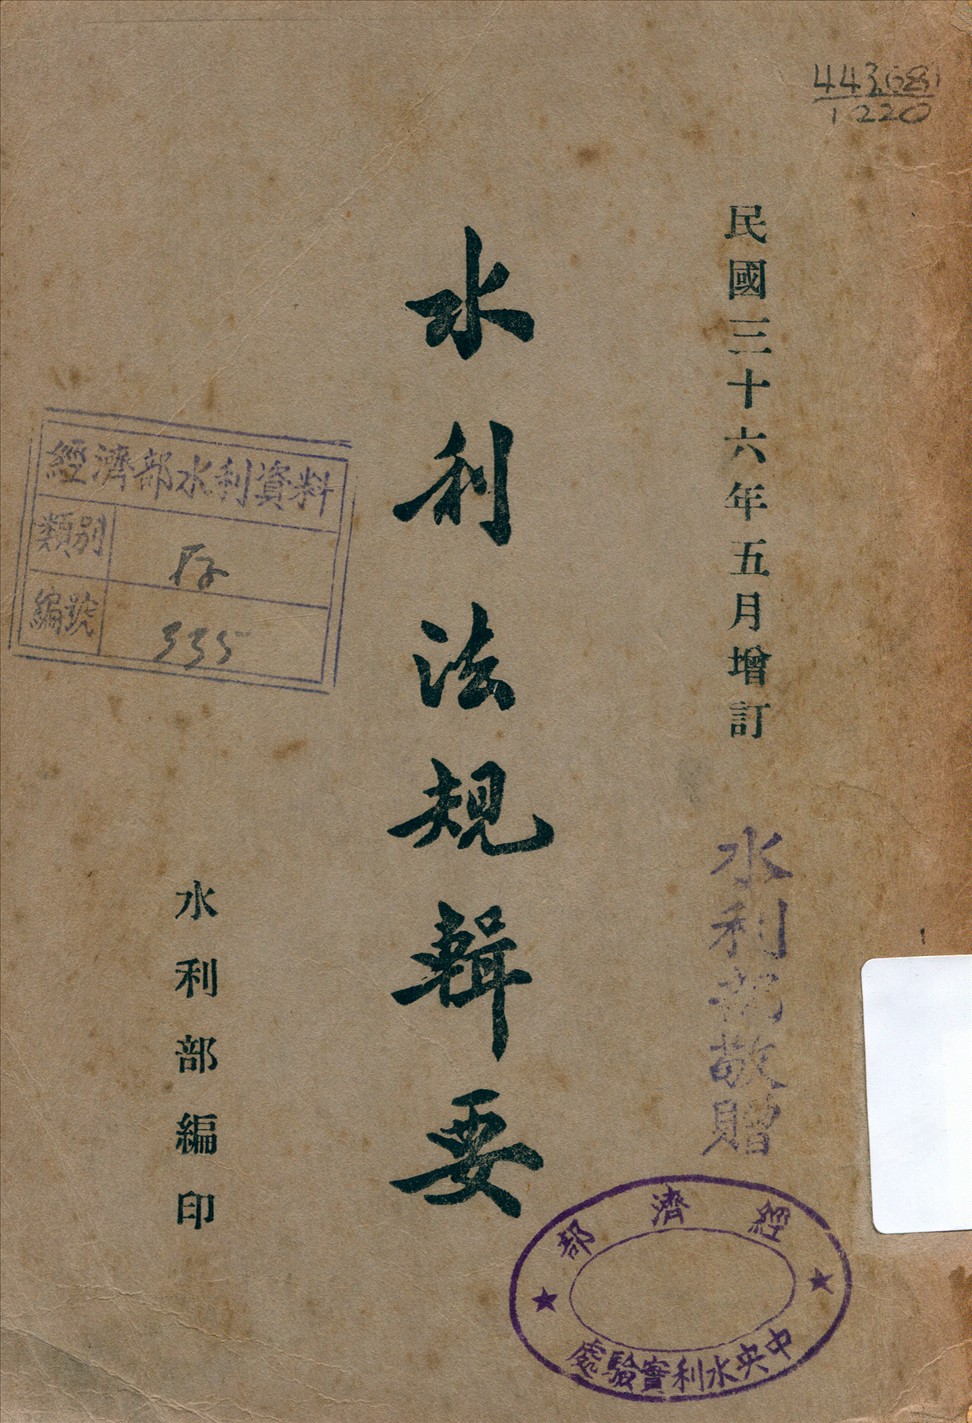 443.681
1220
民國三十六年五月增訂
水利法規輯要
水利部編印
水利部敬贈
經濟部水利資料
類別
編號
335
經濟部
中央水利實驗處